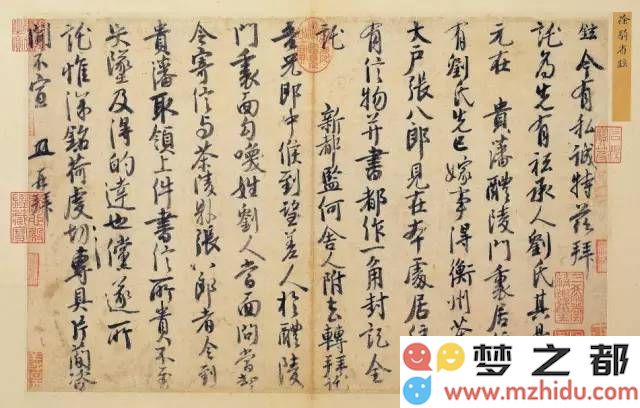 徐騎省鉉
鉉今有私誠特茲拜
託為先有祗承人劉氏其
元在 貴藩醴陵門裏居
有劉氏先已嫁事得衡州茶
大户張八郎見在本處居住
有信物并書都作一角封記全
託 新都監何舍人附去轉拜託
吾兄郎中候到望差人於醴陵
門裏面勾喚姓劉人當面問當却
令寄信与茶陵縣張八郎者令到
貴藩取領上件書信所貴不至
失墜及得的達也儻遂所
託惟深銘荷虔切專具片簡咨
聞不宣 鉉再拜
梦之都
www.mzhidu.com